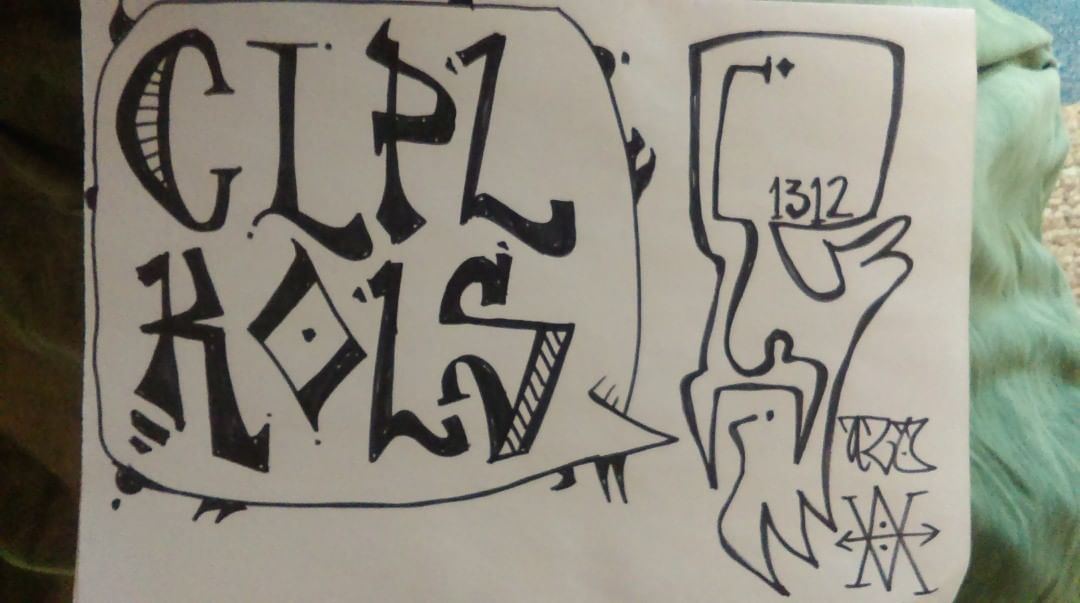 CLPL
KOLS
1312